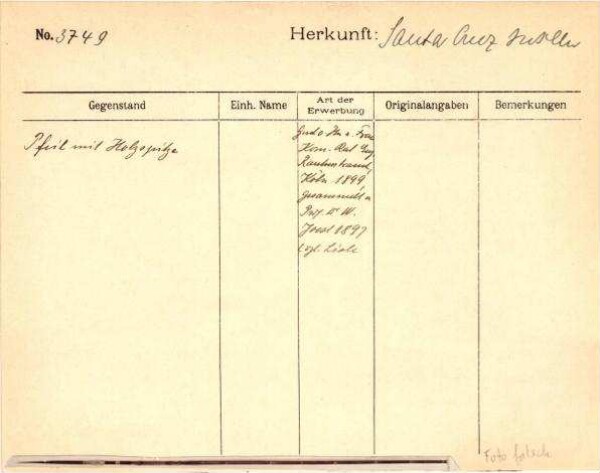 No. 3749
Herkunft: Santa Cruz Inseln
Gegenstand
Einh. Name
Art der Erwerbung
Originalangaben
Bemerkungen
Pfeil mit Holzspitze
Frau
Kom. Rat Eug.
Rautenstrauch,
Köln 1899
gesammelt v.
Prof. Dr W.
Joest 1897
vgl. Liste
Foto